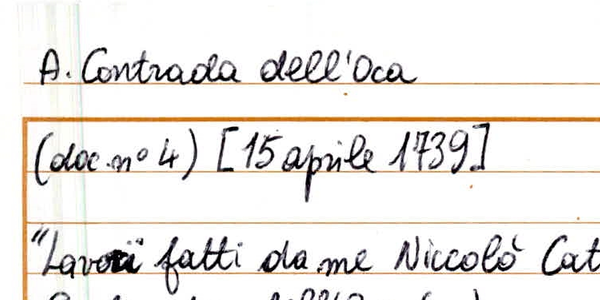 A. Contrada dell'Oca
(doc. nº 4) [15 aprile 1739]
"Lavori fatti da me Niccolò Cat